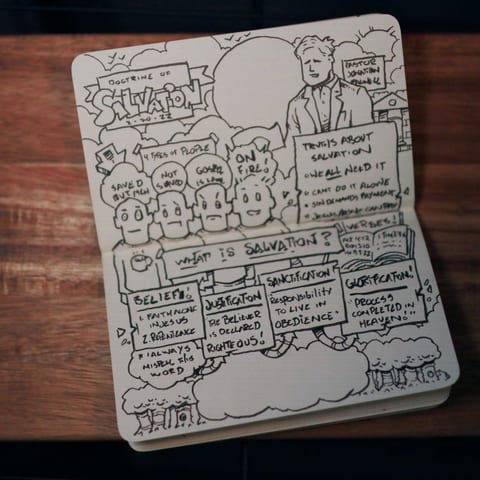 DOCTRINE OF
SALVATION
2.20.22
PASTOR
JONATHAN
4 TYPES OF PEOPLE
SAVED
BUT MEH
NOT
SAVED
GOSPEL
IS LAME
ON
FIRE!
TRUTHS ABOUT
SALVATION
WE ALL NEED IT
CANT DO IT ALONE
SIN DEMANDS PAYMENT
JESUS ALONE CAN PAY
VERSES!
WHAT IS SALVATION?
BELIEF!
1. FAITH ALONE
IN JESUS
2. REPENTANCE
I ALWAYS
MISPELL THIS
WORD
JUSTIFICATION
THE BELIEVER
IS DECLARED
RIGHTEOUS!
SANCTIFICATION
RESPONSIBILITY
TO LIVE IN
OBEDIENCE.
GLORIFICATION!
PROCESS
COMPLETED IN
HEAVEN!